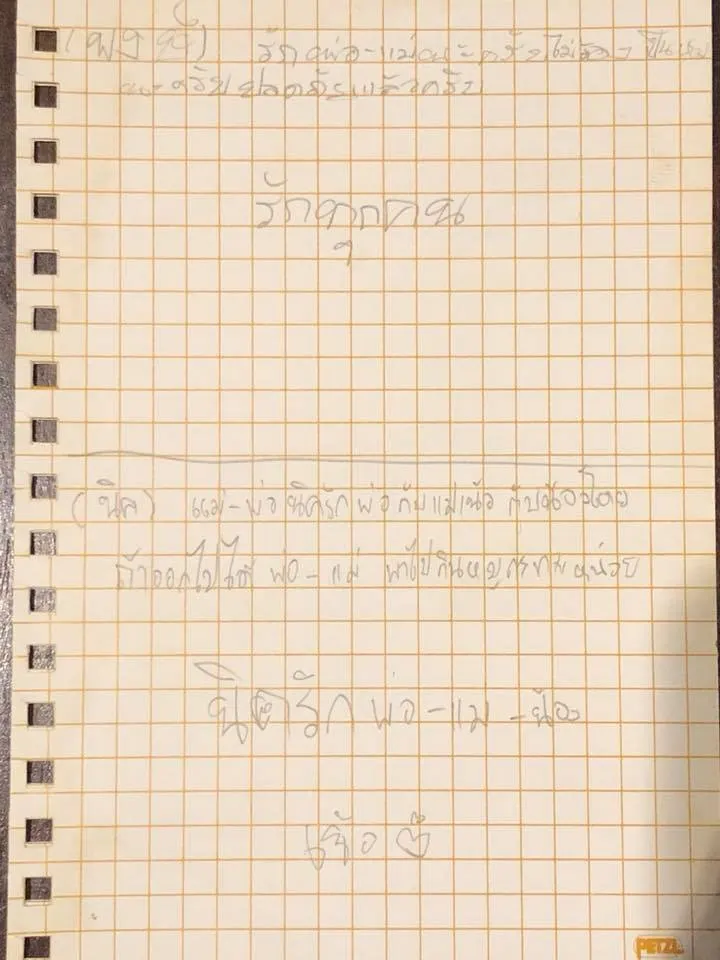 (พงษ์) รักพ่อ-แม่นะครับไม่ต้อง เป็นห่วง
นะครับปลอดภัยแล้วครับ
รักทุกคน
(นิค) แม่-พ่อนิครักพ่อกับแม่แล้ว กับน้องโดย
ถ้าออกไปได้ พ่อ-แม่ พาไปกินหมูกระทะ หน่อย
นิครัก พ่อ-แม่-น้อง
PETZL